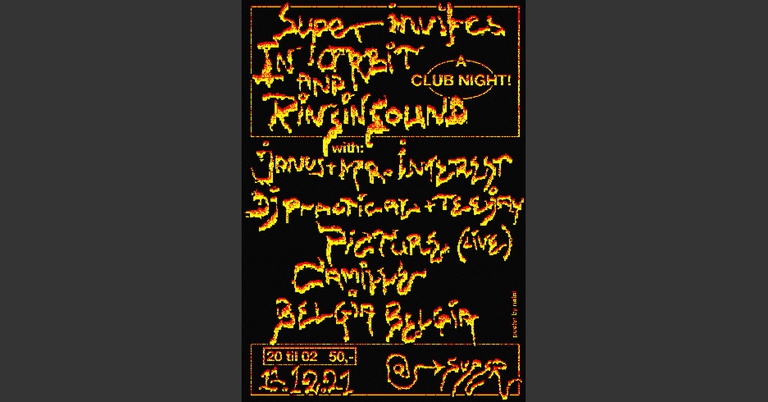 Super invites
IN ORBIT
AND
A
CLUB NIGHT!
RINGINSOUND
with:
JANUS + MR. INTEREST
DJ PRACTICAL + TEEJAY
PICTURE (LIVE)
CAMILLE
BELGIA BELGIA
20 til 02 50,-
.12.21
@ → SUPER
poster by